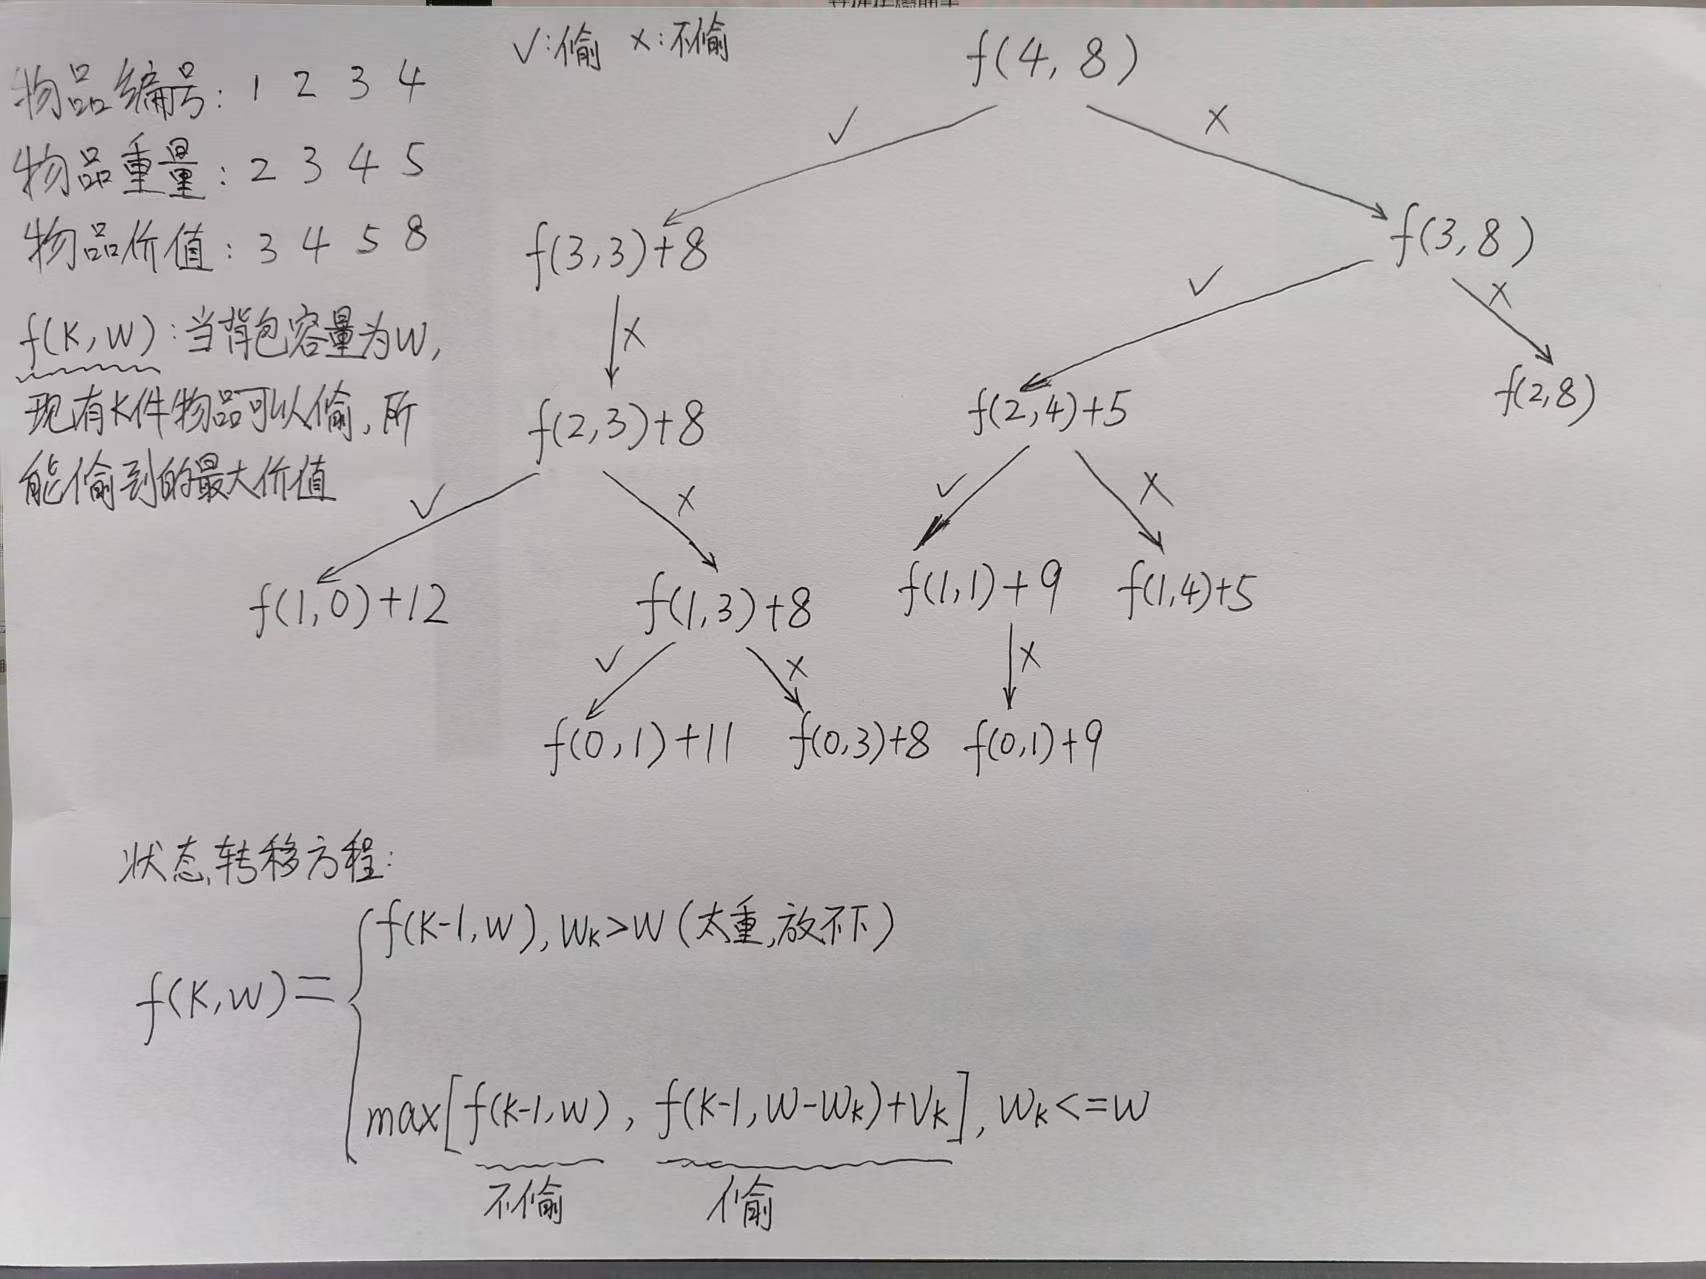 √:偷 ×:不偷
物品编号: 1 2 3 4
物品重量: 2 3 4 5
物品价值: 3 4 5 8
f(K,W):当背包容量为W,
现有K件物品可以偷,所
能偷到的最大价值
f(4,8)
√ ×
f(3,3)+8 f(3,8)
× √ ×
f(2,3)+8 f(2,4)+5 f(2,8)
√ × √ ×
f(1,0)+12 f(1,3)+8 f(1,1)+9 f(1,4)+5
√ × ×
f(0,1)+11 f(0,3)+8 f(0,1)+9
状态转移方程:
f(K-1,W), WK>W(太重,放不下)
f(K,W)=
max[f(K-1,W), f(K-1,W-WK)+VK], WK<=W
不偷 偷